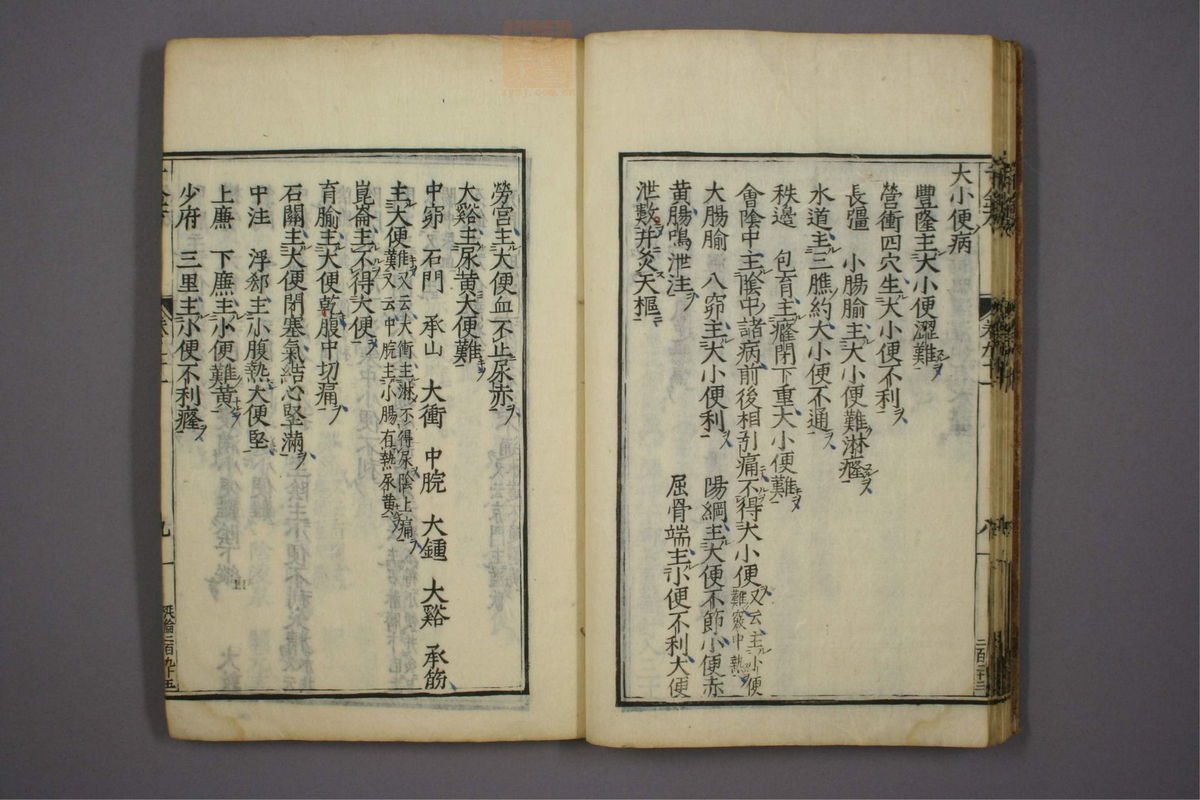 大小便病
豐隆主大小便澀難
營衝四穴主大小便不利
長彊　小腸腧主大小便難淋癃
水道主三膲約大小便不通
秩邊　包肓主癃閉下重大小便難
會陰中主陰中諸病前後相引痛不得大小便又云主小便難竅中熱
大腸腧　八窌主大小便利　陽綱主大便不節小便赤
黃腸鳴泄注　屈骨端主小便不利大便
泄數并灸天樞
勞宮主大便血不止尿赤
大谿主尿黃大便難
中窌　石門　承山　大衝　中脘　大鍾　大谿　承筋
主大便難又云大衝主淋不得尿陰上痛又云中脘主小腸有熱尿黃
崑崙主不得大便
肓腧主大便乾腹中切痛
石關主大便閉塞氣結心堅滿
中注　浮郄主小腹熱大便堅
上廉　下廉主小便難黃
少府　三里主小便不利癃
九
八
二百二十三